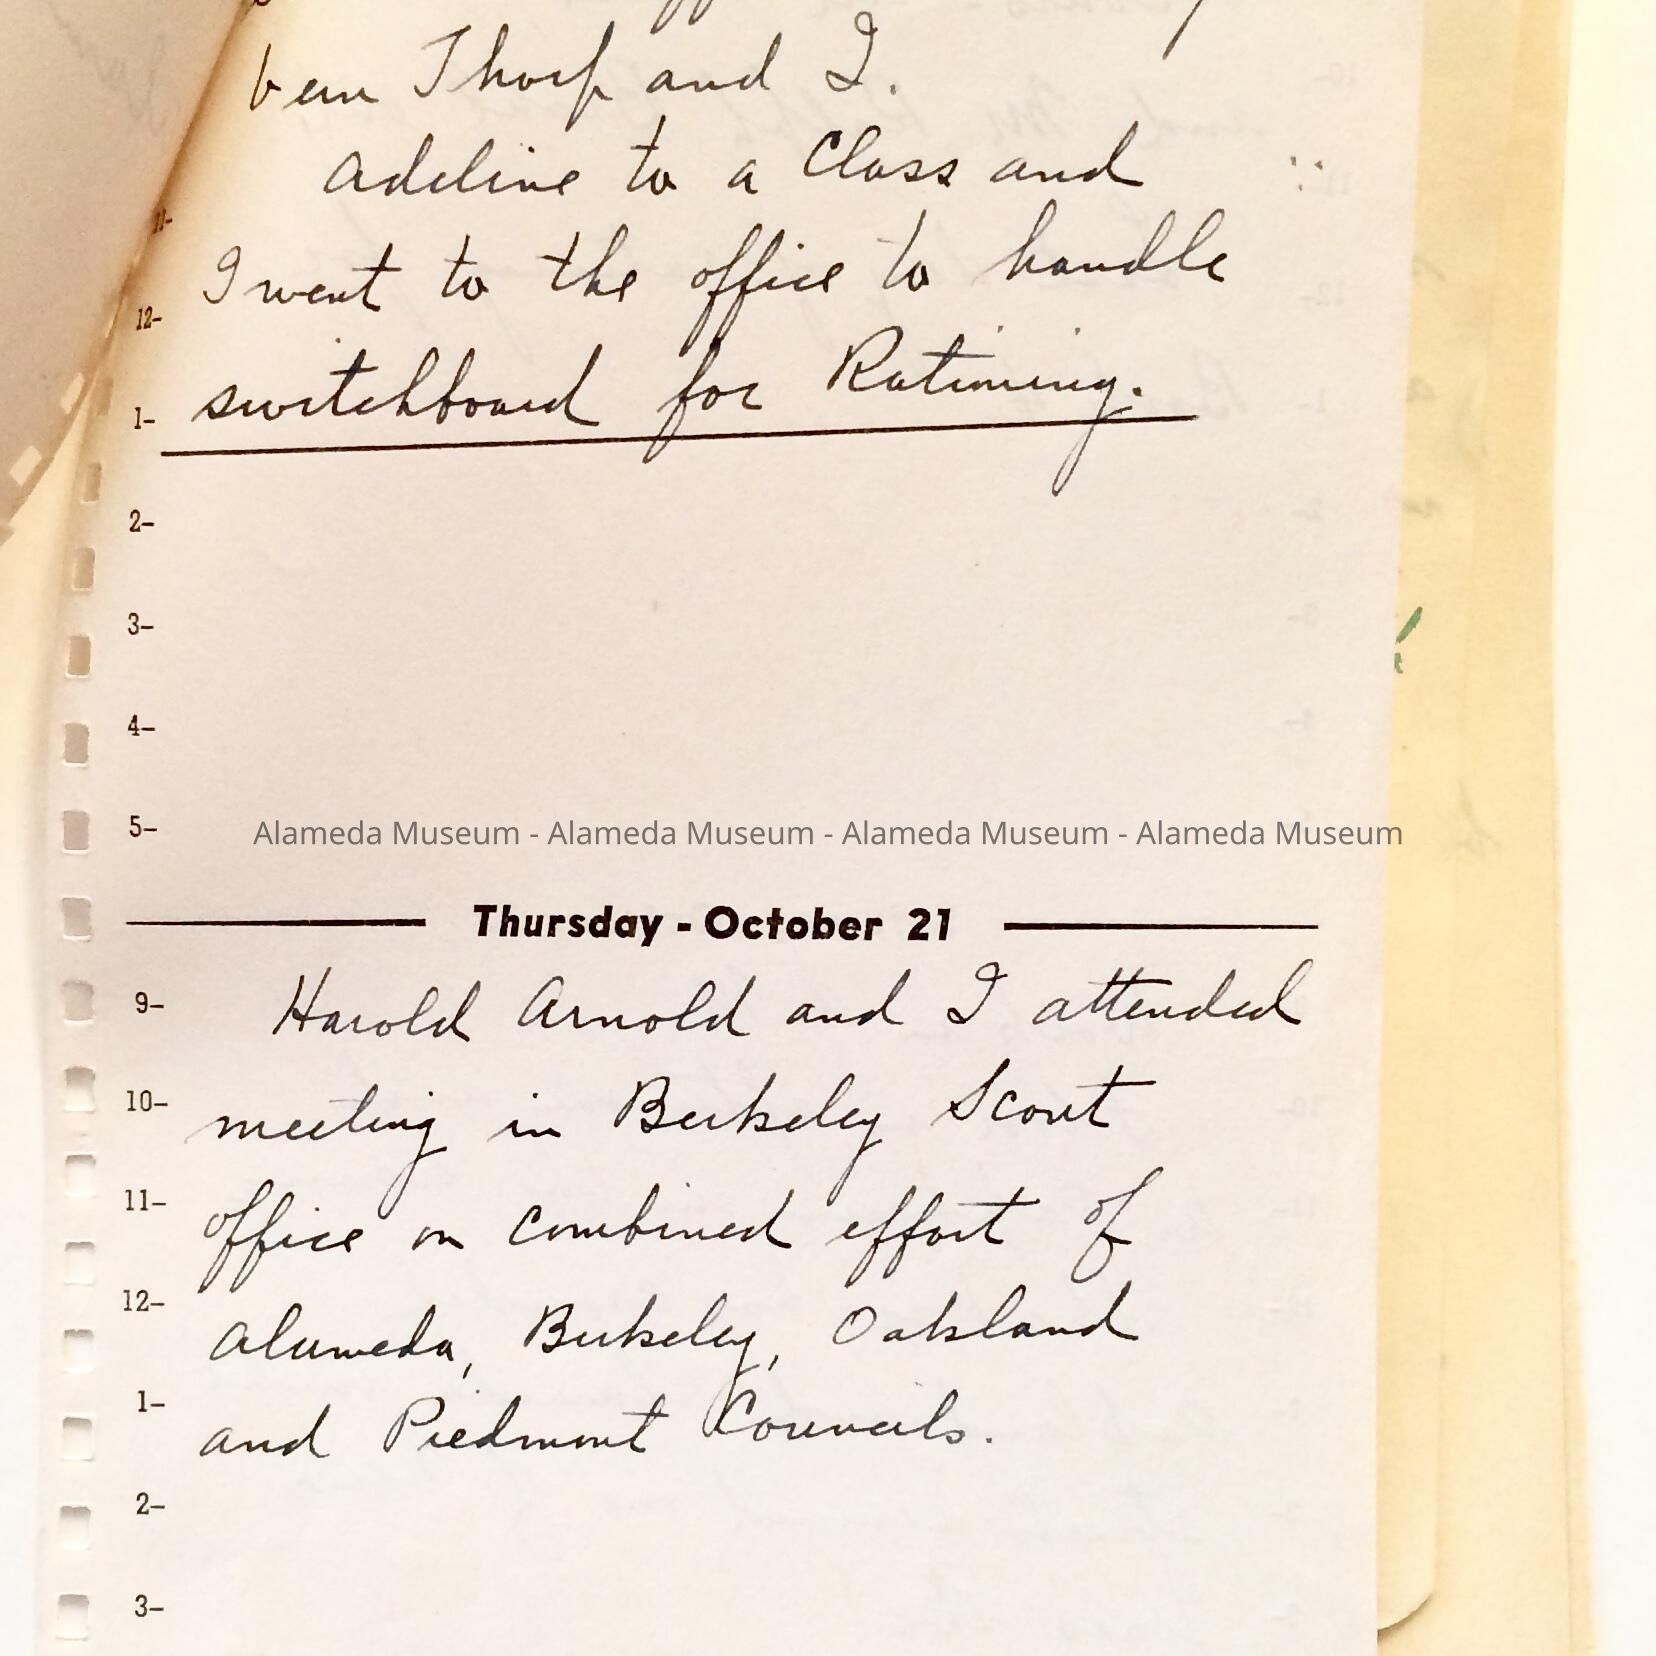 Vern Thorp and I.
Adeline to a Class and
11-
I went to the office to handle
12-
switchboard for Rationing.
1-
2-
3-
4-
5-
Alameda Museum - Alameda Museum - Alameda Museum - Alameda Museum
Thursday - October 21
9- Harold Arnold and I attended
10- meeting in Berkeley Scout
11- office on combined effort of
12- Alameda, Berkeley, Oakland
1- and Piedmont Councils.
2-
3-